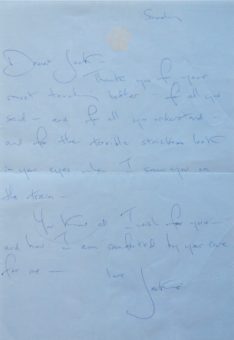 Sunday
Dear Jack –
Thank you for your
most touching letter – of all you
said – and of all you understand –
and for the terrible stricken look
in your eyes when I saw you on
the train –
You know all I wish for you –
and how I am comforted by your care
for me –
love